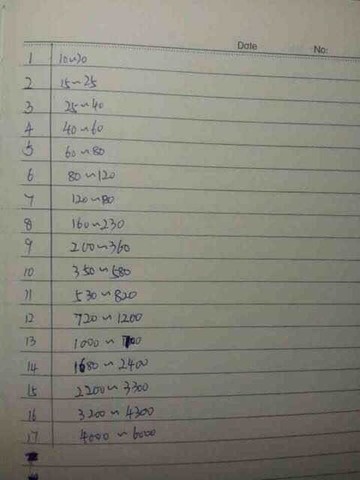 Date No:
1 10~20
2 15~25
3 25~40
4 40~60
5 60~80
6 80~120
7 120~80
8 160~230
9 200~360
10 350~580
11 530~820
12 720~1200
13 1000~1700
14 1680~2400
15 2200~3300
16 3200~4300
17 4000~6000